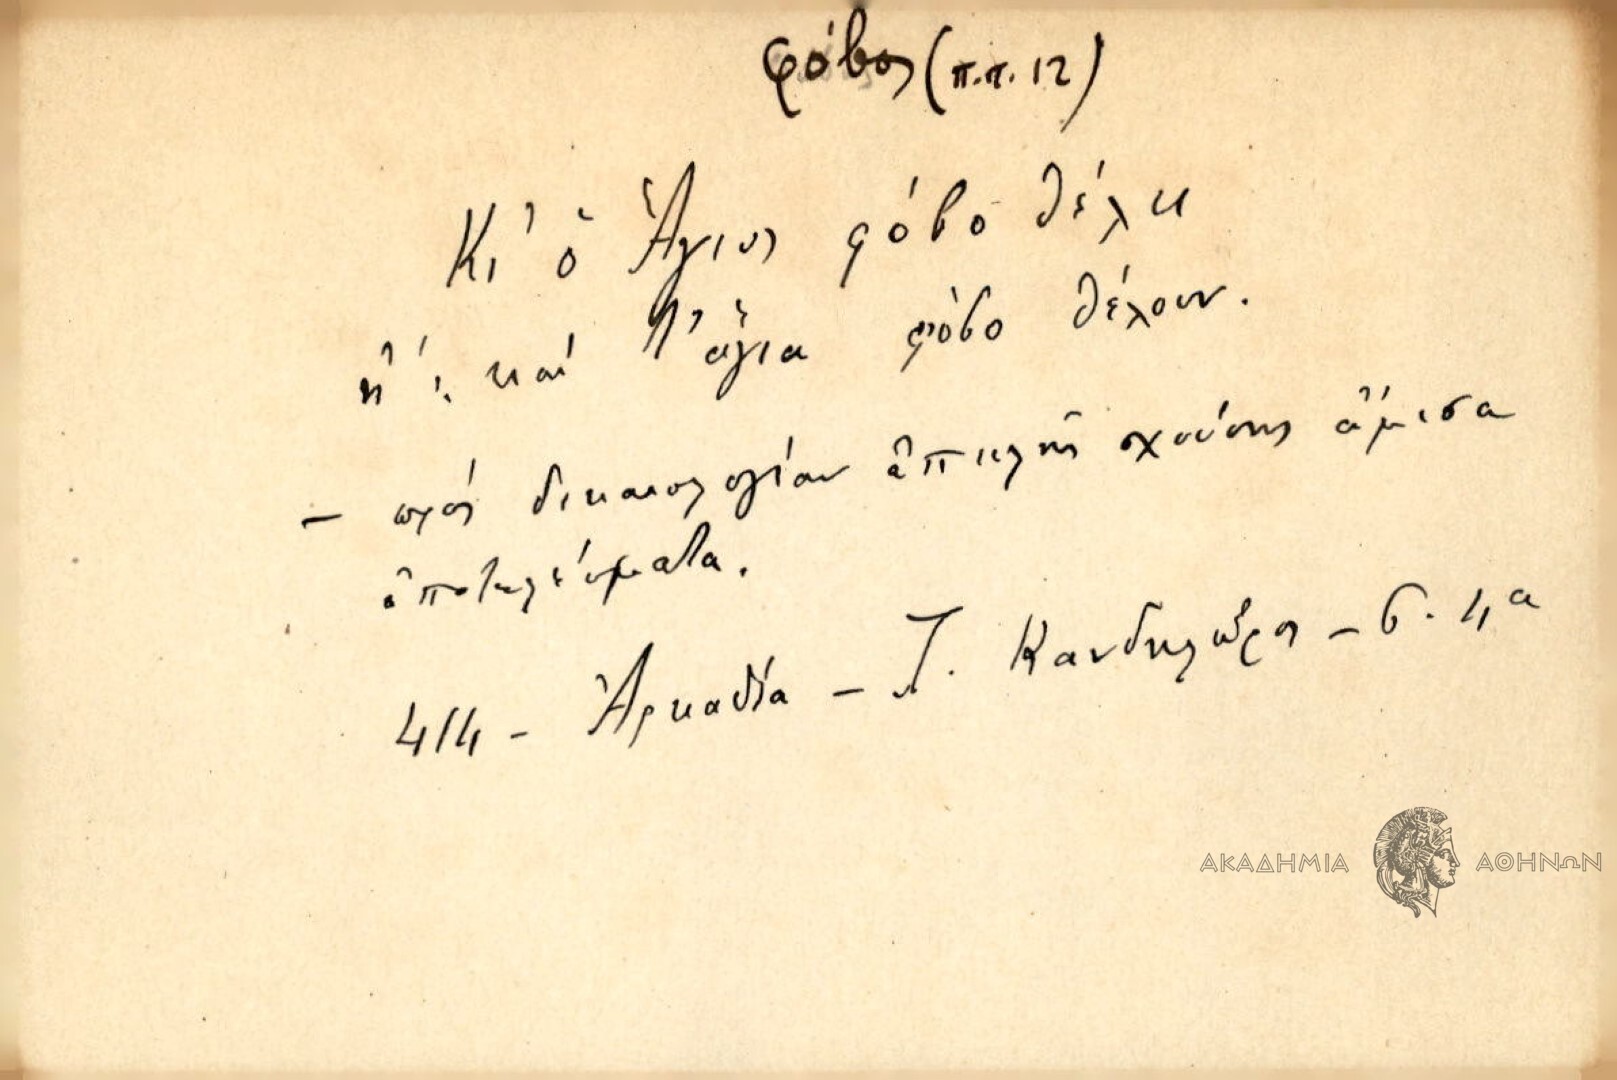 φόβος (π.π. 12)
Κι' ὁ Ἅγιος φόβο θέλει
ἤ : καί τ' ἅγια φόβο θέλουν.
– πρός δικαιολογίαν ἀπειλῆς σχούσης ἄμεσα
ἀποτελέσματα.
414 – Ἀρκαδία – Τ. Κανδηλῶρος – σ. 4α
ΑΚΑΔΗΜΙΑ ΑΘΗΝΩΝ